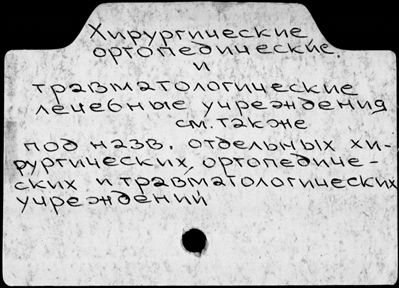 Хирургические
ортопедические.
и
травматологические
лечебные учреждения
см. также
под назв. отдельных хи-
рургических, ортопедиче-
ских и травматологических
учреждений